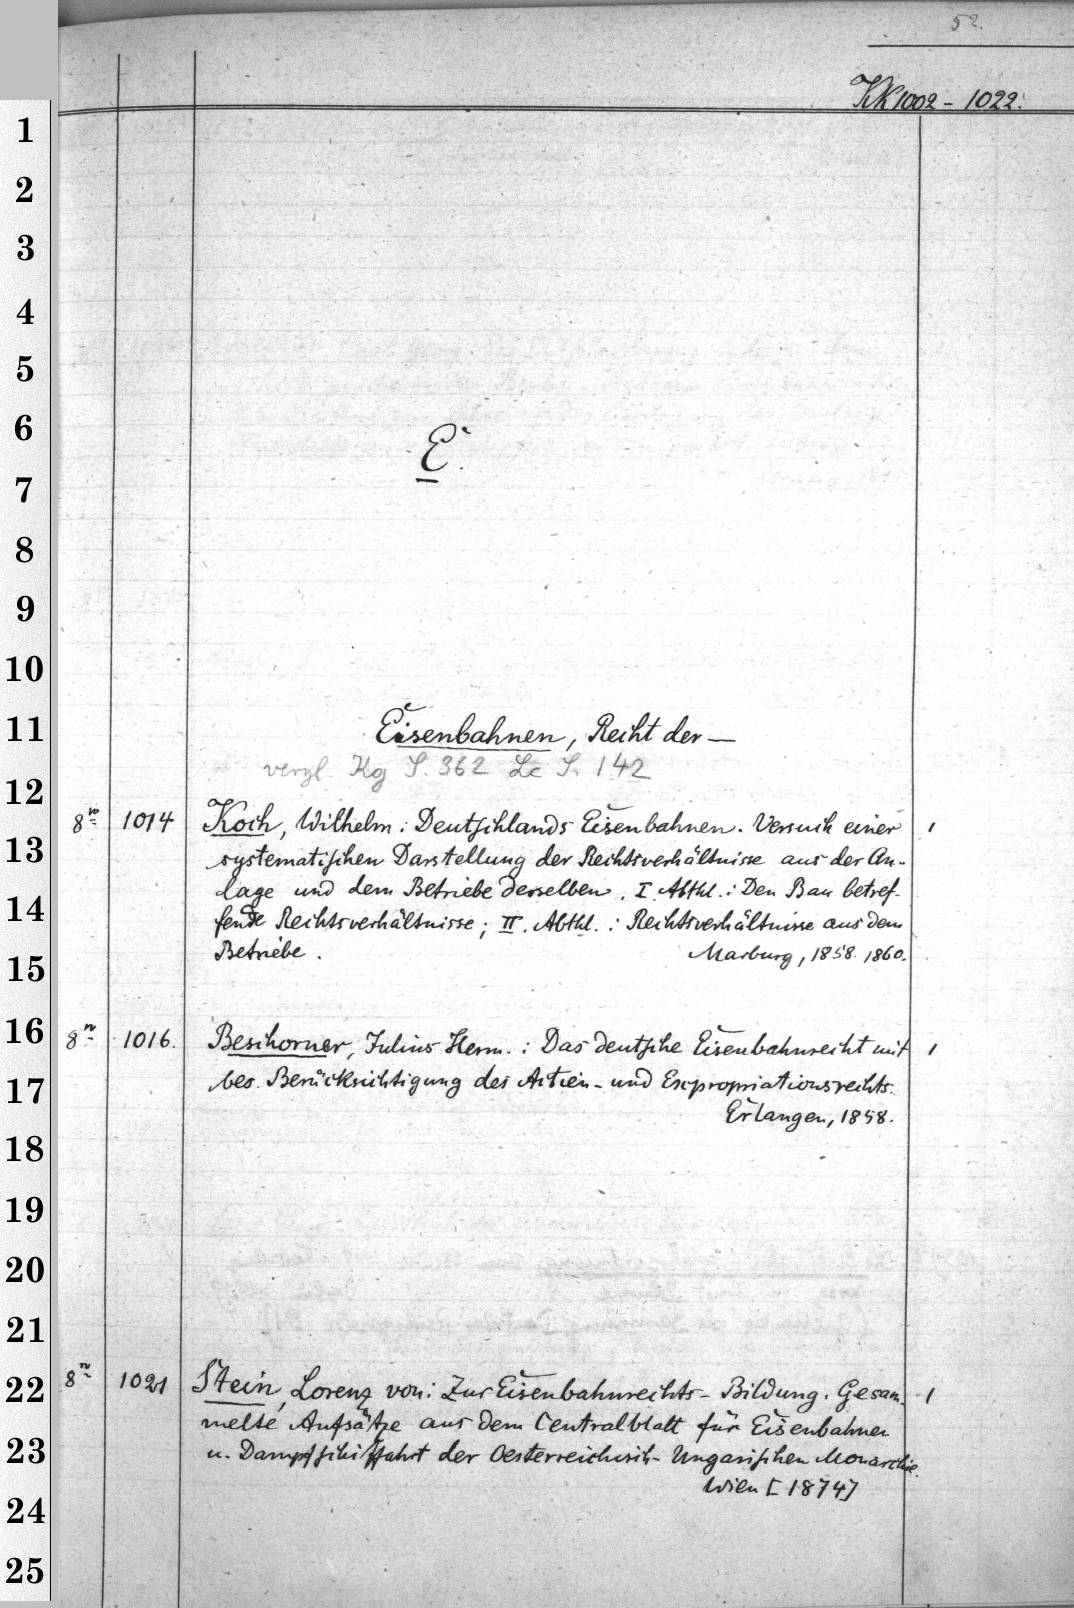 52.
KK 1002 - 1022.
1
2
3
4
5
6
E.
7
8
9
10
11
Eisenbahnen, Recht der —
vergl. Kg S. 362 Le S. 142
12
8º 1014 Koch, Wilhelm: Deutschlands Eisenbahnen. Versuch einer 1
13
systematischen Darstellung der Rechtsverhältnisse aus der An-
lage und dem Betriebe derselben. I. Abthl.: Den Bau betref-
14
fende Rechtsverhältnisse; II. Abthl.: Rechtsverhältnisse aus dem
Betriebe. Marburg, 1858. 1860.
15
16
8º 1016. Beschorner, Julius Herm.: Das deutsche Eisenbahnrecht mit 1
17
bes. Berücksichtigung des Actien- und Expropriationsrechts.
Erlangen, 1858.
18
19
20
21
22
8º 1021 Stein, Lorenz von: Zur Eisenbahnrechts-Bildung. Gesam- 1
melte Aufsätze aus dem Centralblatt für Eisenbahnen
23
u. Dampfschiffahrt der Oesterreichisch-Ungarischen Monarchie.
Wien [1874]
24
25